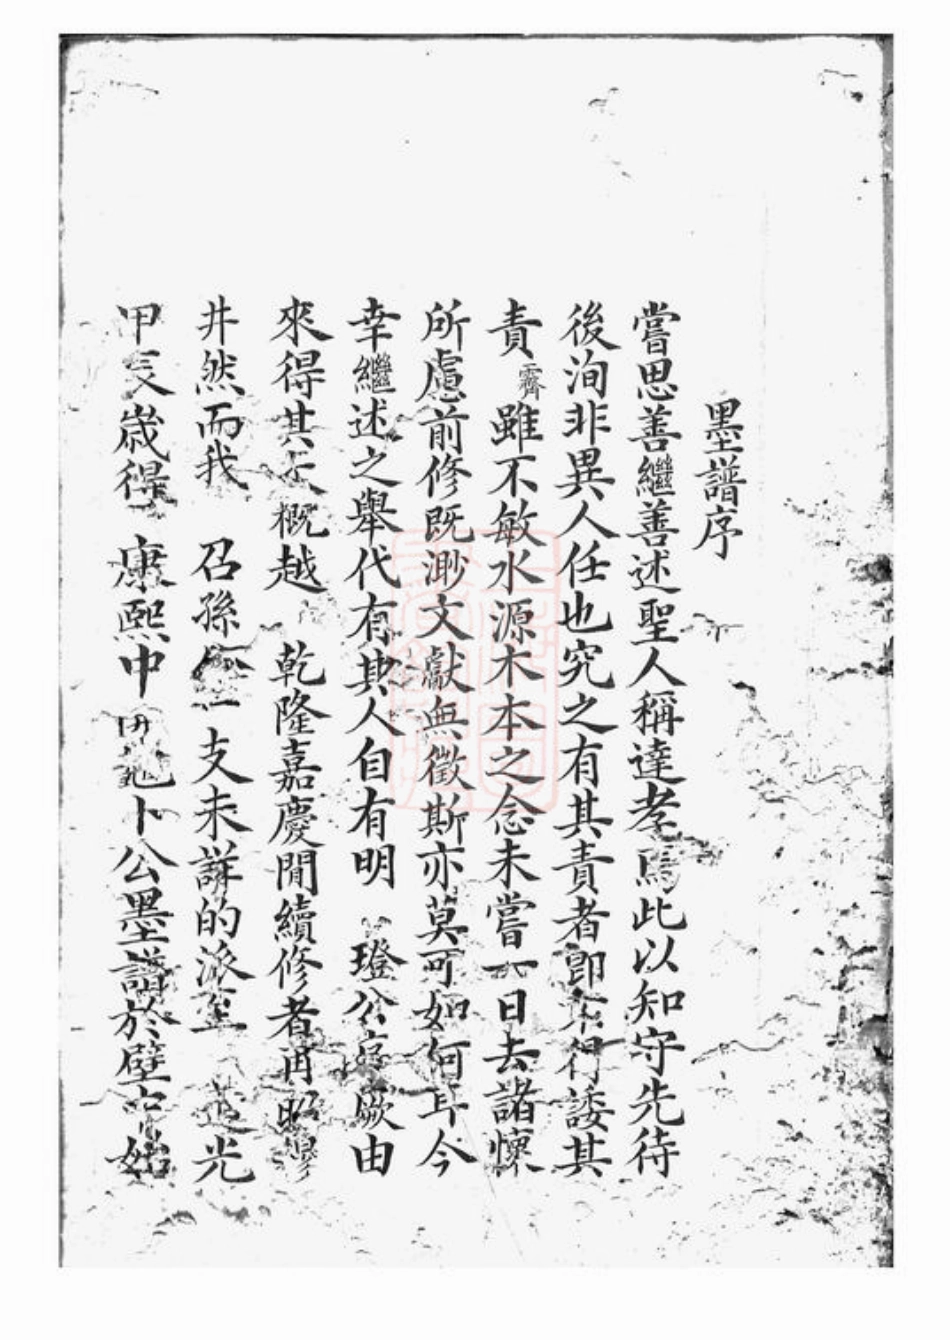 墨譜序
嘗思善繼善述聖人稱達孝焉此以知守先待
後洵非異人任也究之有其責者即不得諉其
責霽雖不敏水源木本之念未嘗一日去諸懷
所慮前修既渺文獻無徵斯亦莫可如何耳今
幸繼述之舉代有其人自有明 璒公序厥由
來得其大概越 乾隆嘉慶間續修者再昭穆
井然而我 召孫公一支未詳的派至 道光
甲辰歲得 康熙中 卜公墨譜於壁中始